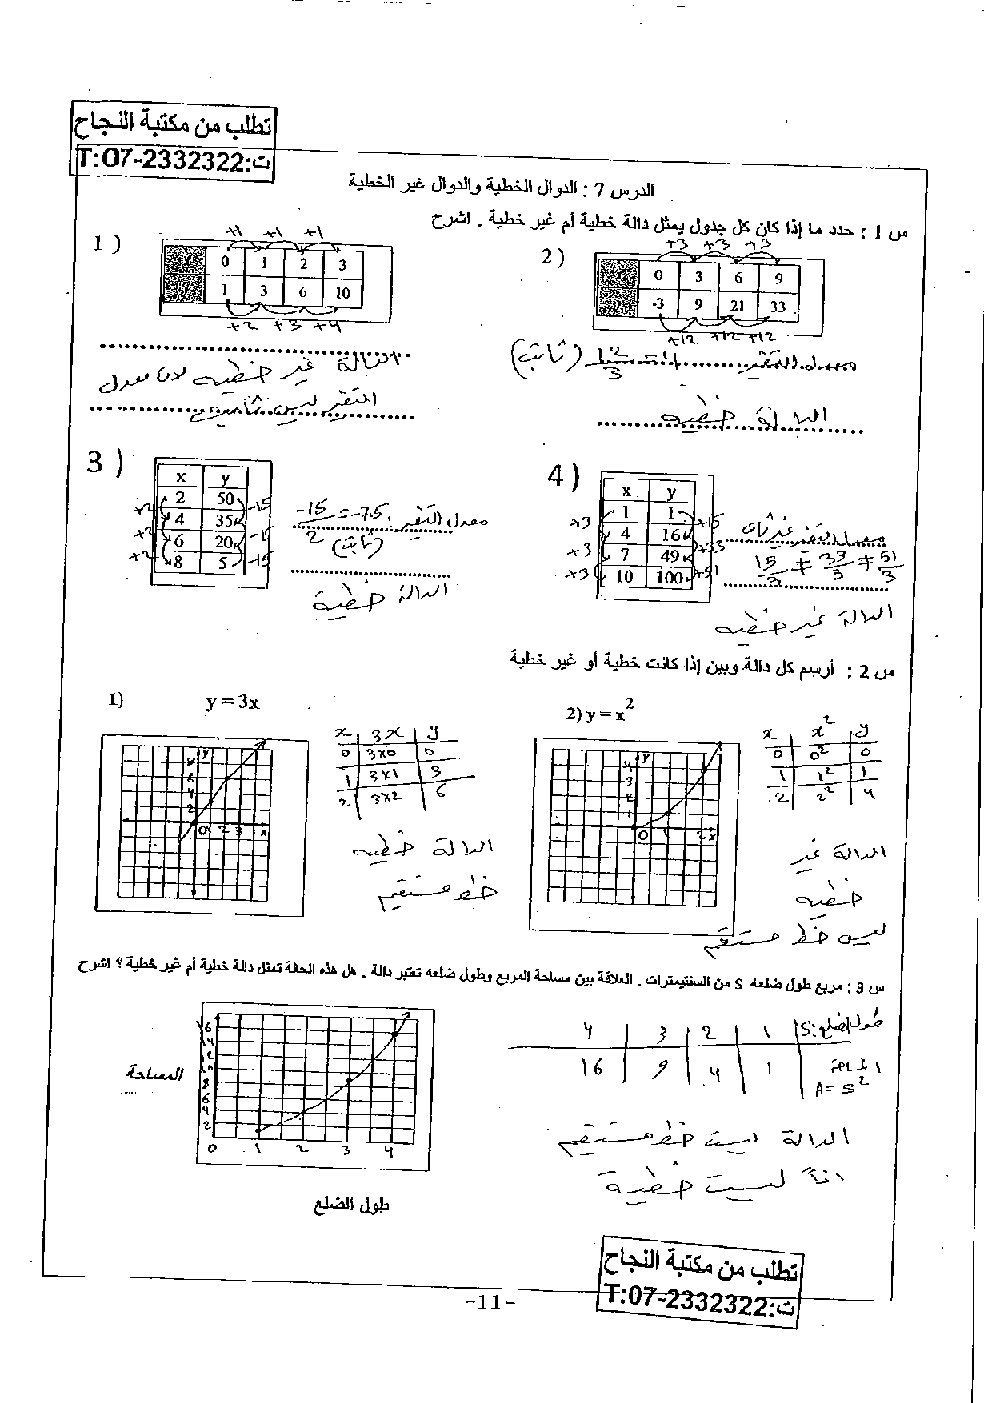 تطلب من مكتبة النجاح
ت:T:07-2332322
الدرس 7 : الدوال الخطية والدوال غير الخطية
س 1 : حدد ما إذا كان كل جدول يمثل دالة خطية أم غير خطية . اشرح
1 )
+1 +1 +1
0 1 2 3
1 3 6 10
+2 +3 +4
الدالة غير خطية لان معدل
التغير ليس ثابت
2 )
+3 +3 +3
0 3 6 9
-3 9 21 33
+12 +12 +12
معدل التغير 12/3 = 4 (ثابت)
الدالة خطية
3 )
x y
2 50
4 35
6 20
8 5
+2 +2 +2
-15 -15 -15
معدل التغير -15/2 = -7.5
(ثابت)
الدالة خطية
4 )
x y
1 1
4 16
7 49
10 100
+3 +3 +3
+15 +33 +51
معدل التغير غير ثابت
15/3 ≠ 33/3 ≠ 51/3
الدالة غير خطية
س 2 : أرسم كل دالة وبين إذا كانت خطية أو غير خطية
1) y = 3x
x 3x y
0 3x0 0
1 3x1 3
2 3x2 6
الدالة خطية
خط مستقيم
2) y = x²
x x² y
0 0² 0
1 1² 1
2 2² 4
الدالة غير
خطية
ليس خط مستقيم
س 3 : مربع طول ضلعه S من السنتيمترات . العلاقة بين مساحة المربع وطول ضلعه تعتبر دالة . هل هذه الحالة تمثل دالة خطية أم غير خطية ؟ اشرح
طول الضلع S: 1 2 3 4
A = s² 1 4 9 16
المساحة
0 1 2 3 4
طول الضلع
الدالة ليست خط مستقيم
اذاً ليست خطية
تطلب من مكتبة النجاح
ت:T:07-2332322
-11-